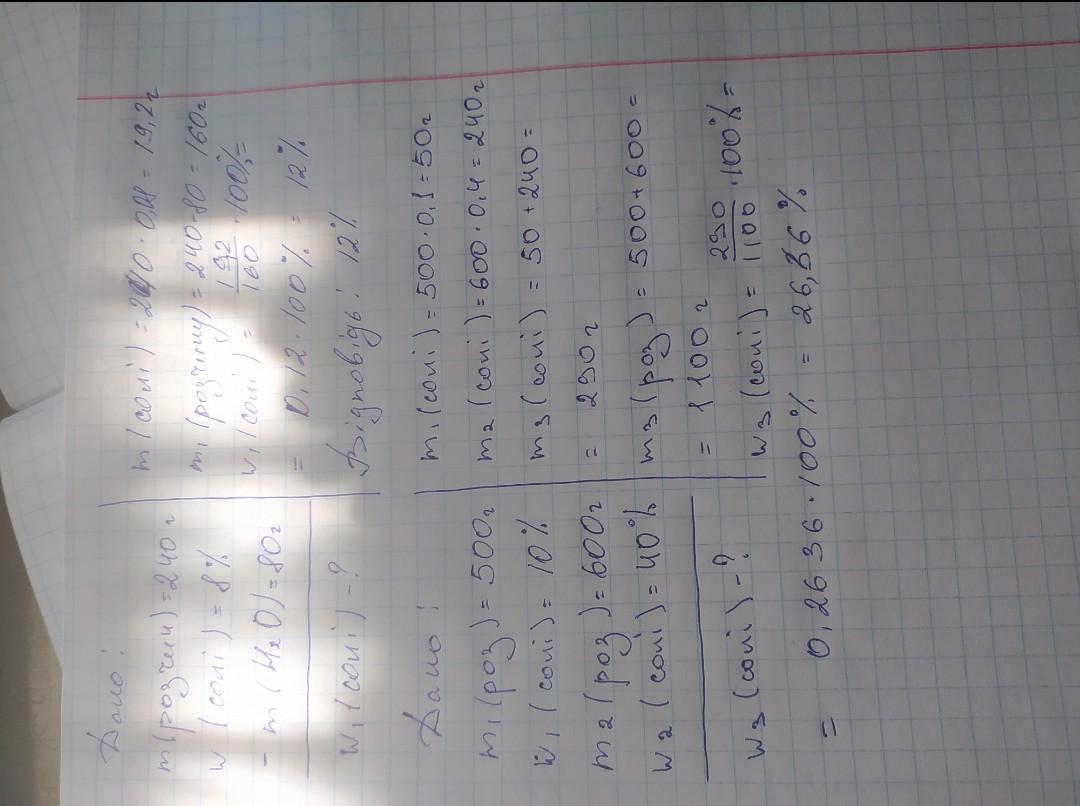 Дано:
m(розчин) = 240 г
w (солі) = 8%
- m (H₂O) = 80 г
w₁ (солі) - ?
m (солі) = 240 · 0,08 = 19,2 г
m₁ (розчину) = 240-80 = 160 г
w₁ (солі) = 192/160 · 100% =
= 0,12 · 100% = 12%
Відповідь: 12%
Дано:
m₁ (роз) = 500 г
w₁ (солі) = 10%
m₂ (роз) = 600 г
w₂ (солі) = 40%
w₃ (солі) - ?
m₁ (солі) = 500 · 0,1 = 50 г
m₂ (солі) = 600 · 0,4 = 240 г
m₃ (солі) = 50 + 240 =
= 290 г
m₃ (роз) = 500 + 600 =
= 1100 г
w₃ (солі) = 290/1100 · 100% =
= 0,2636 · 100% = 26,36%